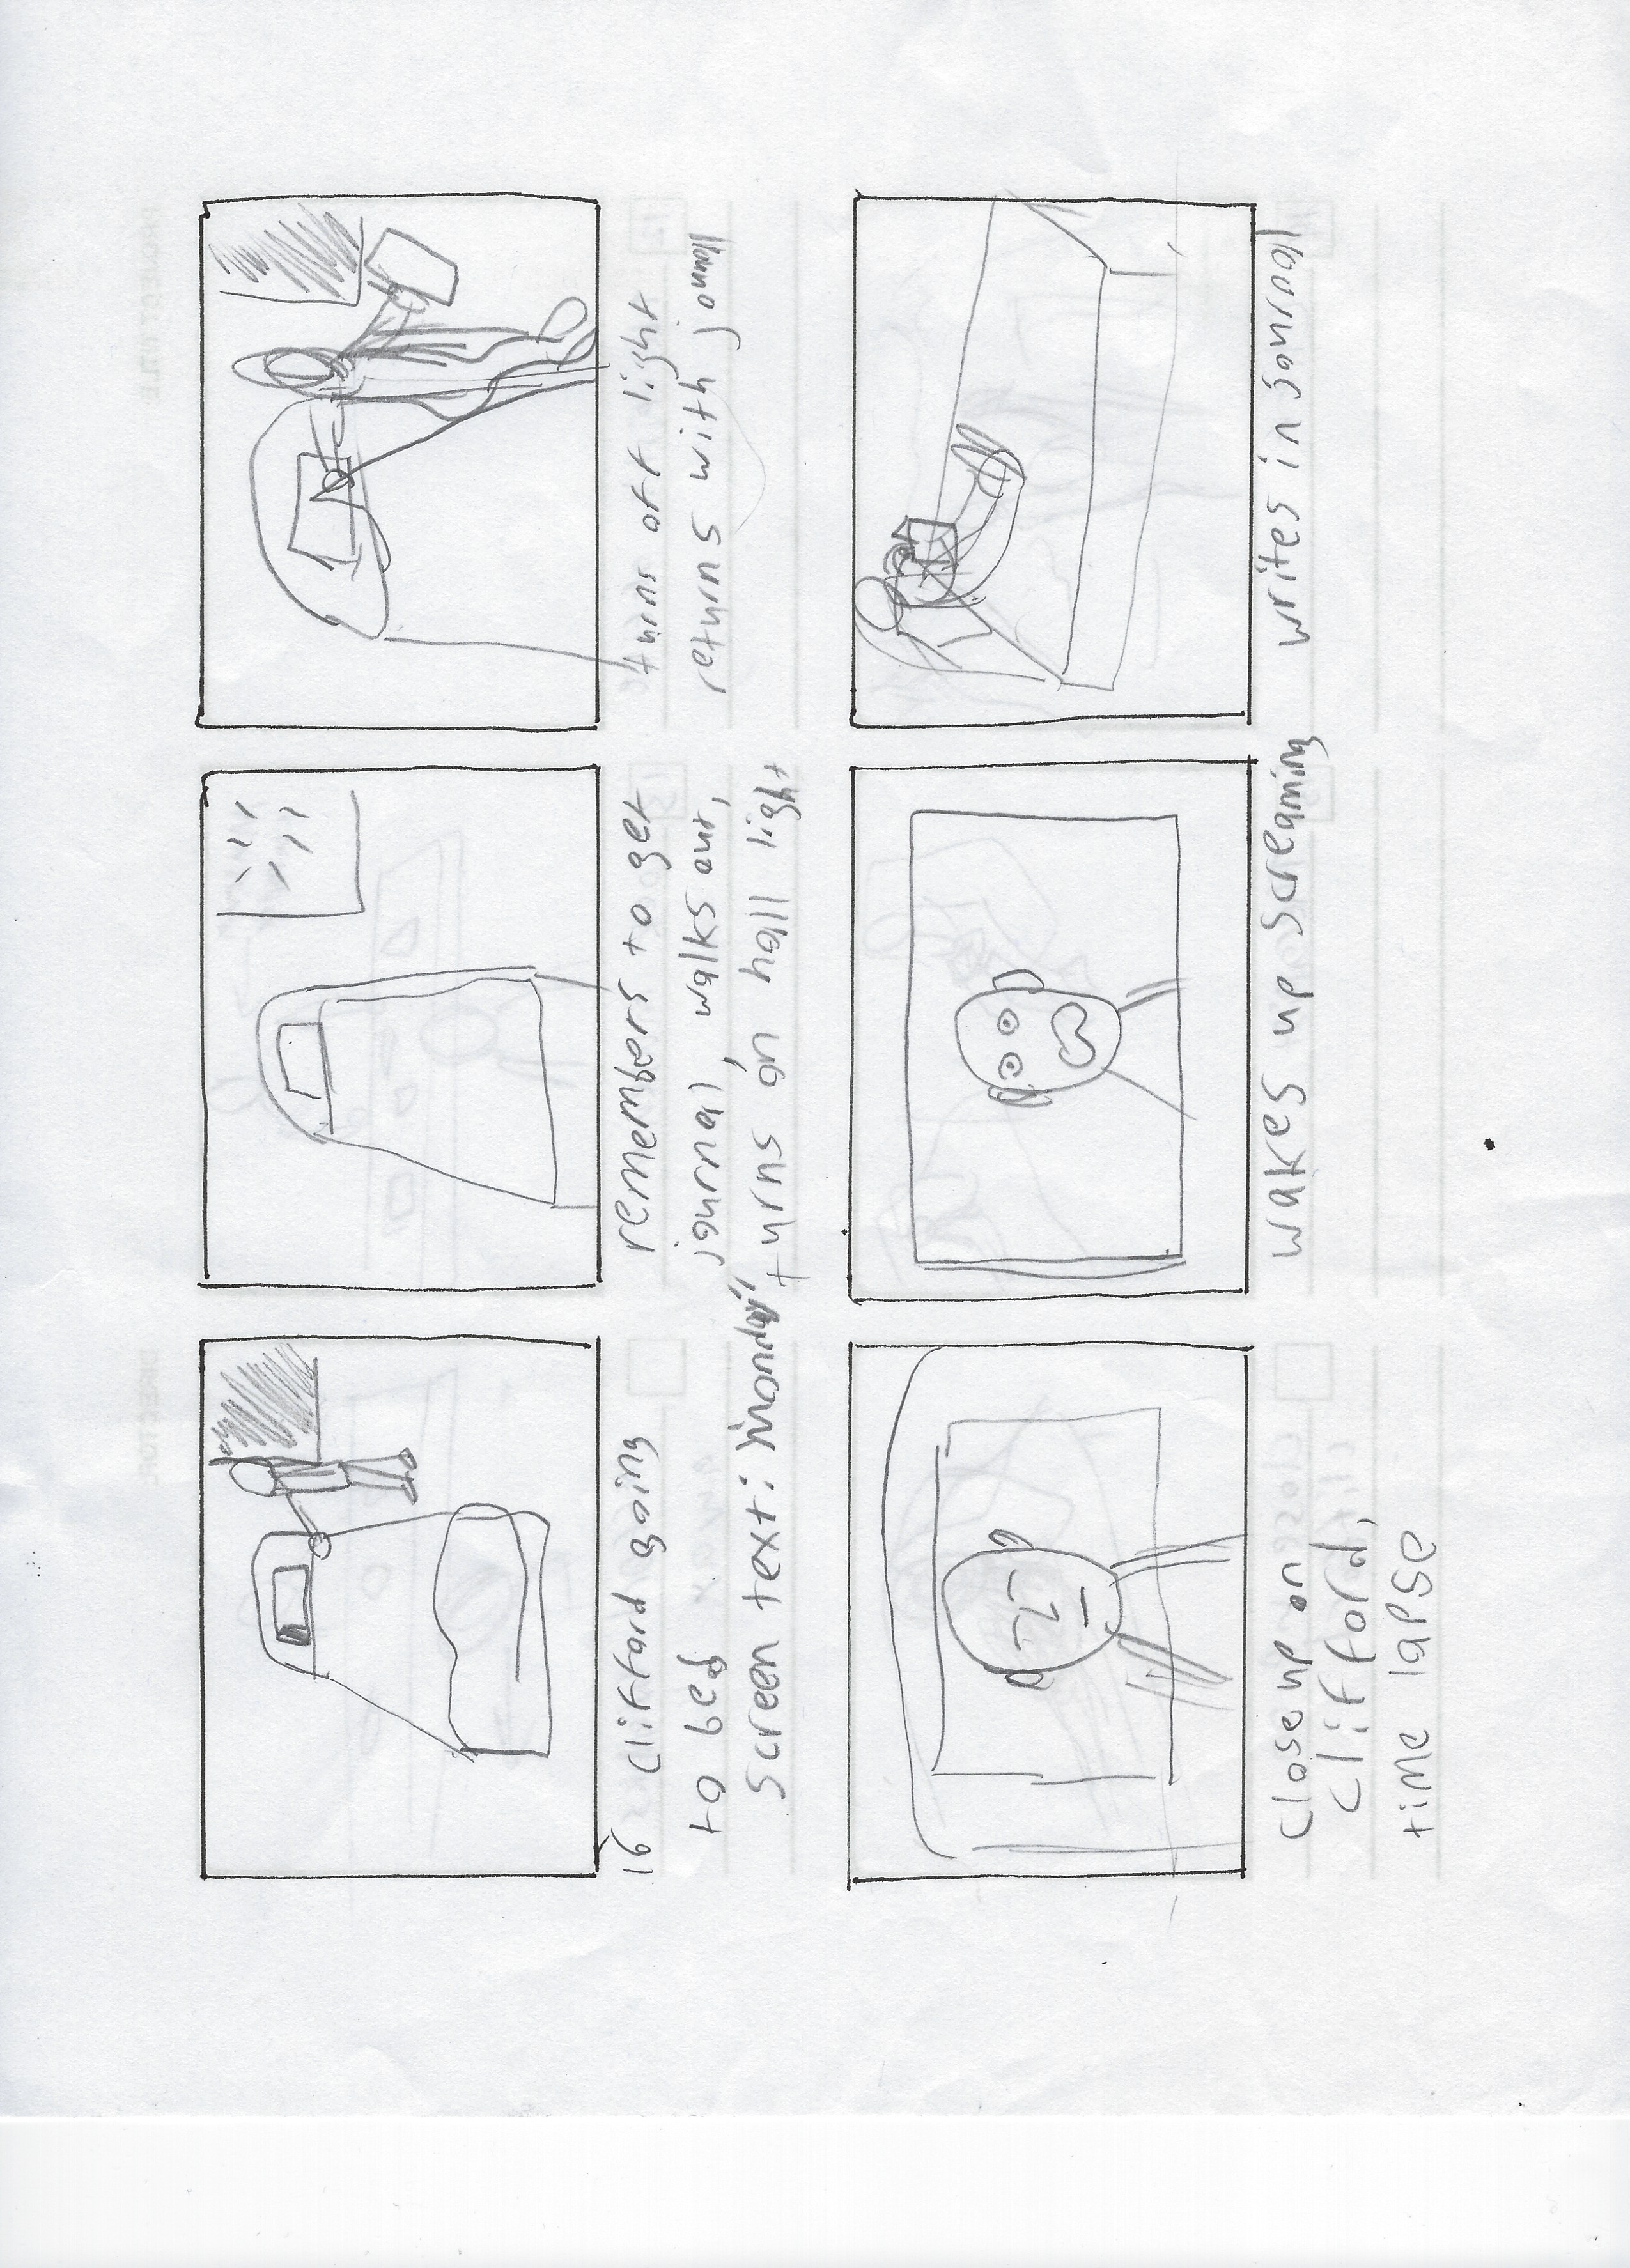 16 Clifford going
to bed
Screen text: "monday"
remembers to get
journal, walks out,
turns on hall light
turns off light
returns with journal
Close up on
Clifford,
time lapse
wakes up screaming
writes in journal